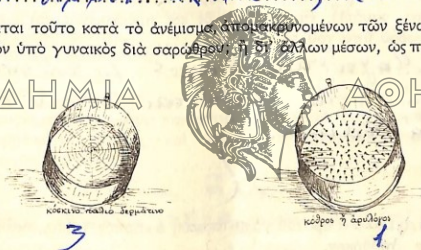 εται τοῦτο κατὰ τὸ ἀνέμισμα, ἀπομακρυνομένων τῶν ξένω
ον ὑπὸ γυναικὸς διὰ σαρώθρου; ἢ δι᾽ ἄλλων μέσων, ὡς π
ΔΗΜΙΑ ΑΘΗ
κόσκινο παλιὸ δερμάτινο
κόθρος ἢ ἀρυλόγος
3 1